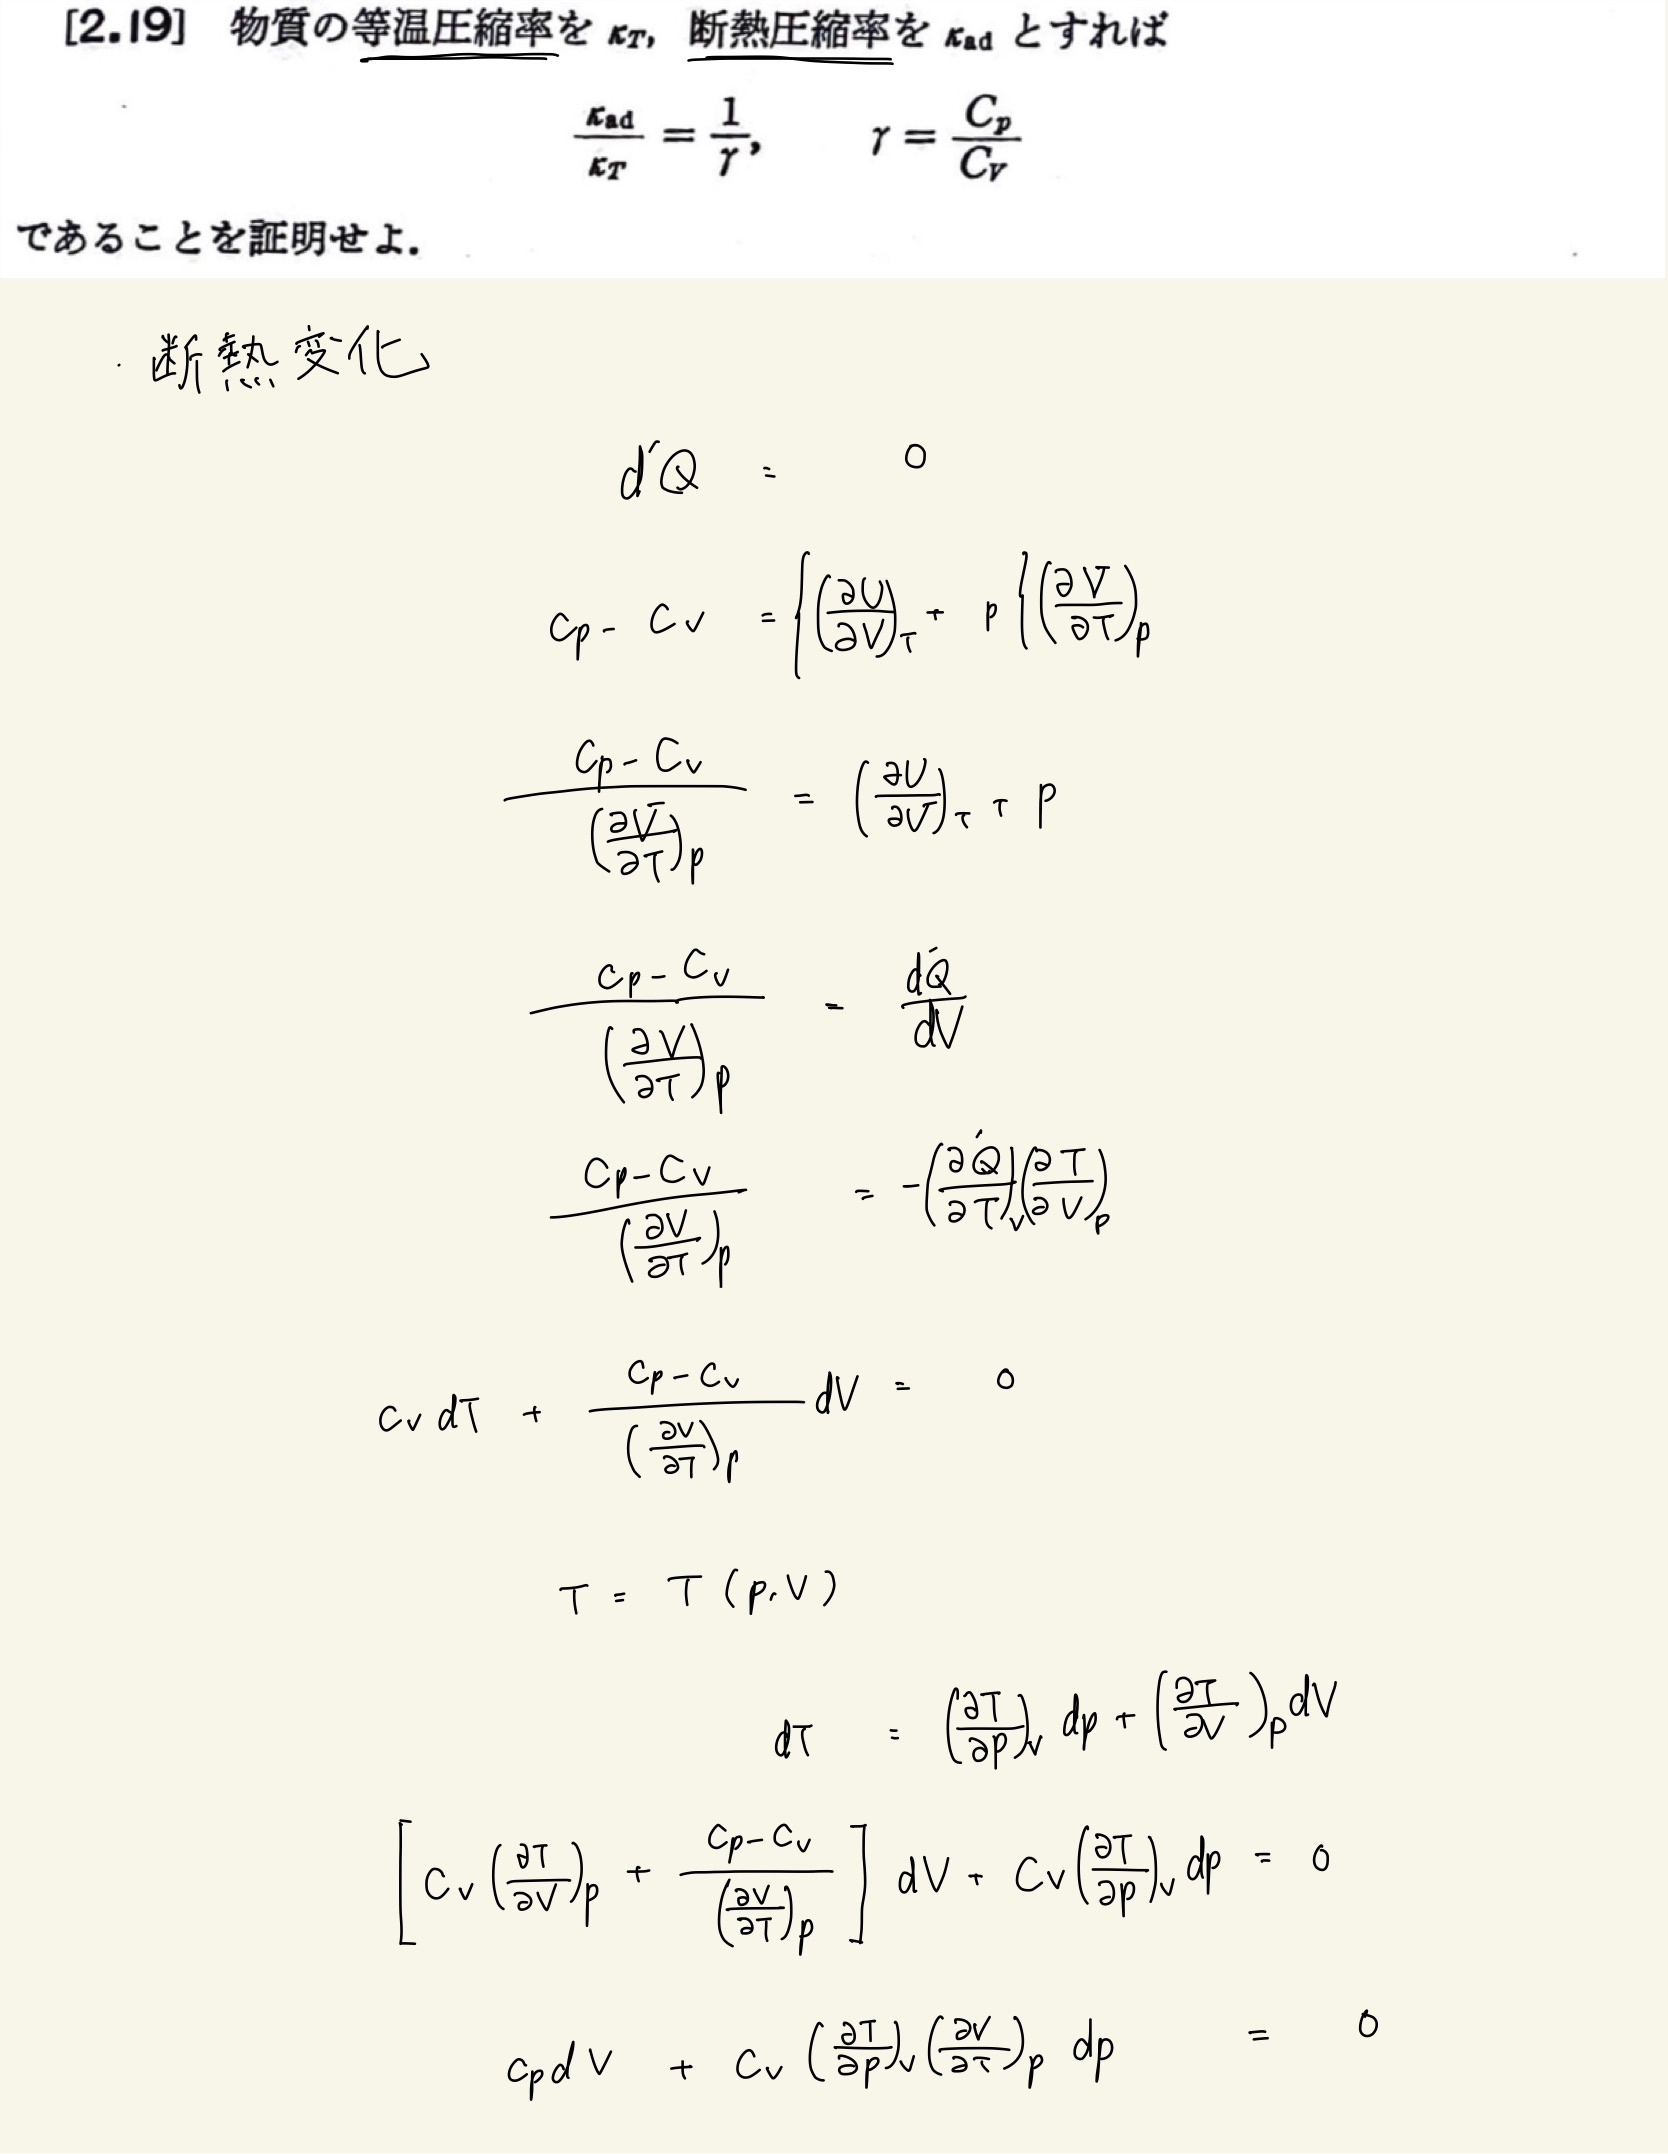 [2.19] 物質の等温圧縮率を κT, 断熱圧縮率を κad とすれば
κad/κT = 1/γ, γ = Cp/CV
であることを証明せよ.
・断熱変化
d'Q = 0
Cp - Cv = {(∂U/∂V)T + p{(∂V/∂T)p
(Cp - Cv)/(∂V/∂T)p = (∂U/∂V)T + p
(Cp - Cv)/(∂V/∂T)p = d'Q/dV
(Cp - Cv)/(∂V/∂T)p = -(∂'Q/∂T)v(∂T/∂V)p
Cv dT + (Cp - Cv)/(∂V/∂T)p dV = 0
T = T (p, V)
dT = (∂T/∂p)v dp + (∂T/∂V)p dV
[Cv (∂T/∂V)p + (Cp - Cv)/(∂V/∂T)p] dV + Cv (∂T/∂p)v dp = 0
Cp dV + Cv (∂T/∂p)v (∂V/∂T)p dp = 0